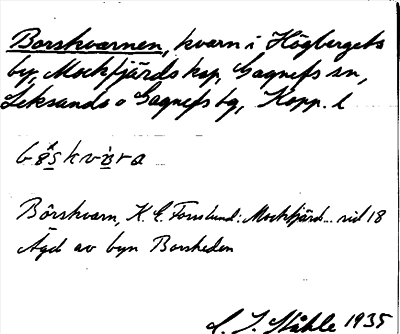 Borskvarnen, kvarn i Högbergets
by, Mockfjärds kap, Gagnefs sn,
Leksands o Gagnefs tg, Kopp. l
Bôrskvarn, K. E. Forslund: Mockfjärd... sid 18
Ägd av byn Borsheden
C. I. Ståhle 1935